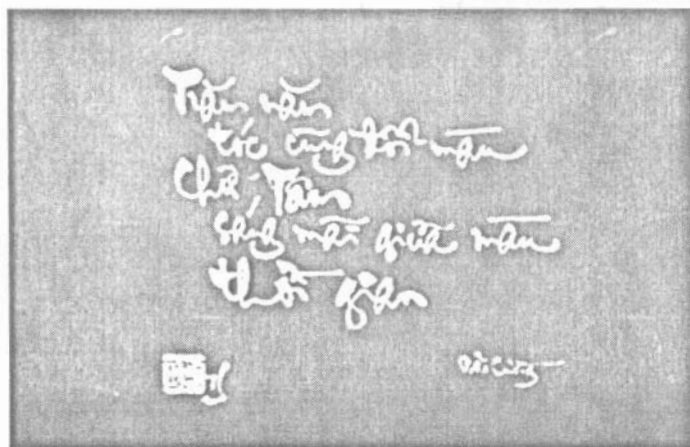 Trăm năm
tóc cũng đổi màu
Chữ Tâm
sáng mãi giữa màu
thời gian